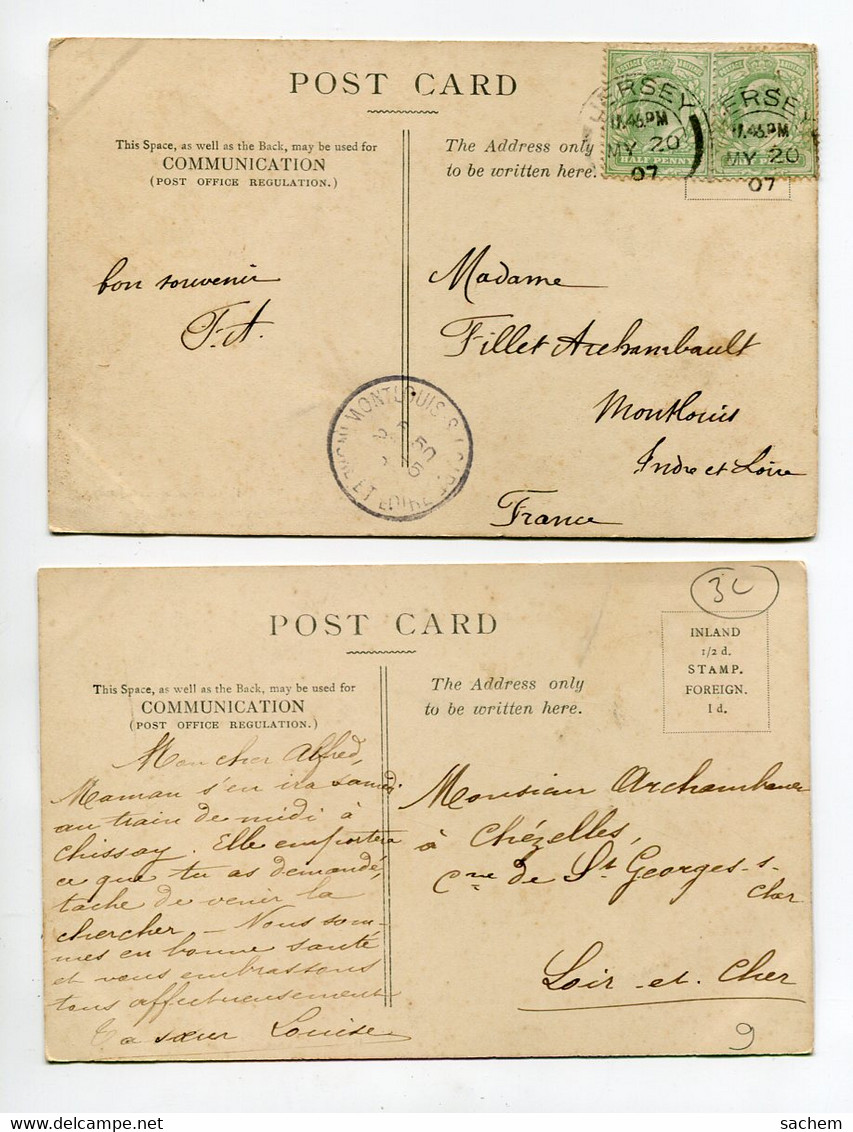 POST CARD
This Space, as well as the Back, may be used for
COMMUNICATION
(POST OFFICE REGULATION.)
The Address only
to be written here.
JERSEY
MY 20
07
HALF PENNY
ERSEY
MY 20
07
bon souvenir
F. A.
Madame
Fillet Archambault
Montlouis
Indre et Loire
France
MONTLOUIS-S-LOIRE
ET LOIRE
POST CARD
This Space, as well as the Back, may be used for
COMMUNICATION
(POST OFFICE REGULATION.)
The Address only
to be written here.
INLAND
1/2 d.
STAMP.
FOREIGN.
1 d.
Mon cher Alfred,
Maman s'en ira samedi
au train de midi à
Chissay. Elle emportera
ce que tu as demandé,
tache de venir la
chercher - Nous som-
mes en bonne santé
et vous embrassons
tous affectueusement
Ta sœur Louise
Monsieur
à Chézelles,
Cne de St Georges-s-
Cher
Loir-et-Cher
9
sachem